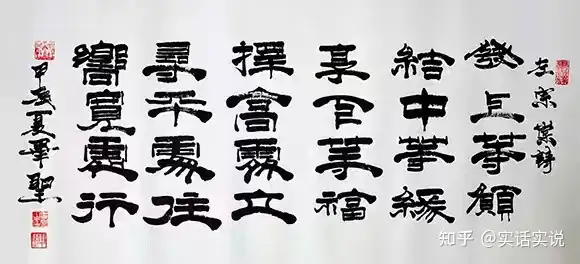 左宗棠詩
發上等願
結中等緣
享下等福
擇高處立
尋平處住
嚮寬處行
夏
知乎 @实话实说